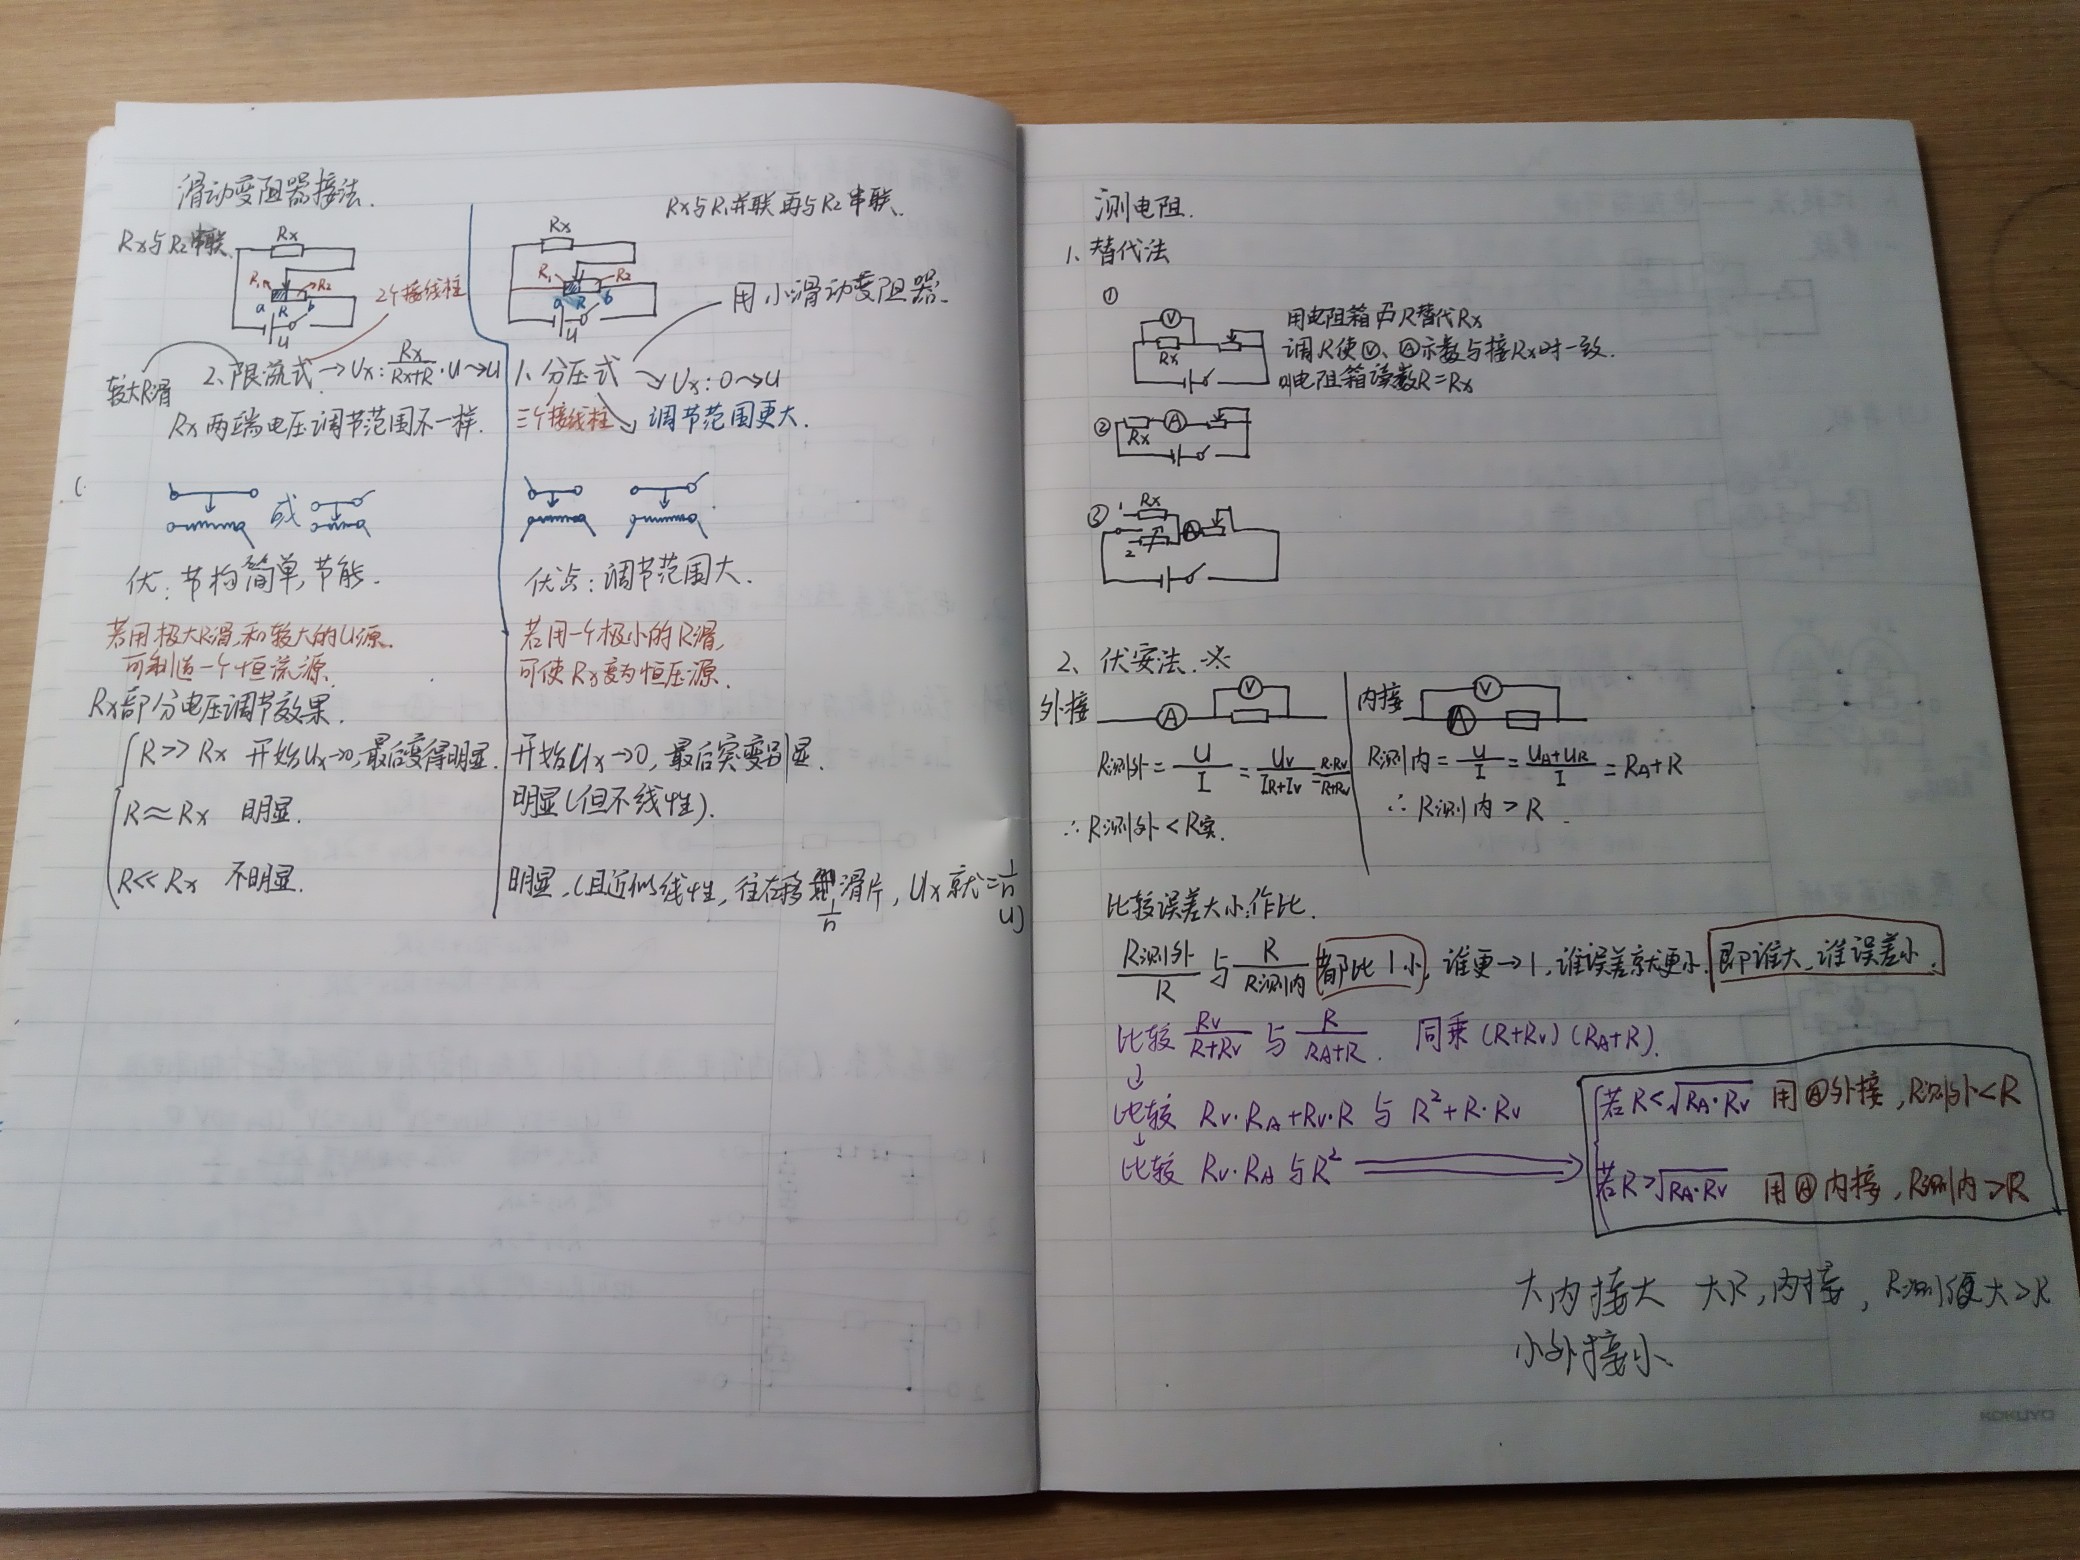 滑动变阻器接法.
Rx与R2串联.
Rx
R1
R2
a R b
U
2个接线柱
较大R滑
2、限流式 → Ux: Rx/(Rx+R)·U → U
Rx两端电压调节范围不一样.
或
优: 节构简单,节能.
若用极大R滑,和较大的U源.
可制造一个恒流源.
Rx部分电压调节效果.
R>>Rx 开始Ux→0,最后变得明显.
R≈Rx 明显.
R<<Rx 不明显.
Rx与R1并联再与R2串联.
Rx
R1
R2
a R b
U
用小滑动变阻器.
1、分压式 → Ux: 0→U
三个接线柱 调节范围更大.
优点: 调节范围大.
若用一个极小的R滑,
可使Rx变为恒压源.
开始Ux→0, 最后突变明显.
明显(但不线性).
明显.(且近似线性, 往右移 1/n 滑片, Ux就=1/n U)
测电阻.
1、替代法
①
V
Rx
用电阻箱 R替代Rx
调R使Ⓥ、Ⓐ示数与接Rx时一致.
则电阻箱读数R=Rx
②
Rx A
③
1 Rx
2
A
2、伏安法.※
外接 A V
R测外=U/I=Uv/(IR+Iv)=R·Rv/(R+Rv)
∴R测外<R实.
内接 V A
R测内=U/I=(UA+UR)/I=RA+R
∴R测内>R
比较误差大小:作比.
R测外/R 与 R/R测内 都比1小, 谁更→1, 谁误差就更小. 即谁大,谁误差小.
比较 Rv/(R+Rv) 与 R/(RA+R). 同乘(R+Rv)(RA+R).
↓
比较 Rv·RA+Rv·R 与 R²+R·Rv
↓
比较 Rv·RA与R²
若R<√(RA·Rv) 用Ⓐ外接, R测外<R
若R>√(RA·Rv) 用Ⓐ内接, R测内>R
大内接大 大R,内接, R测便大>R
小外接小.
KOKUYO